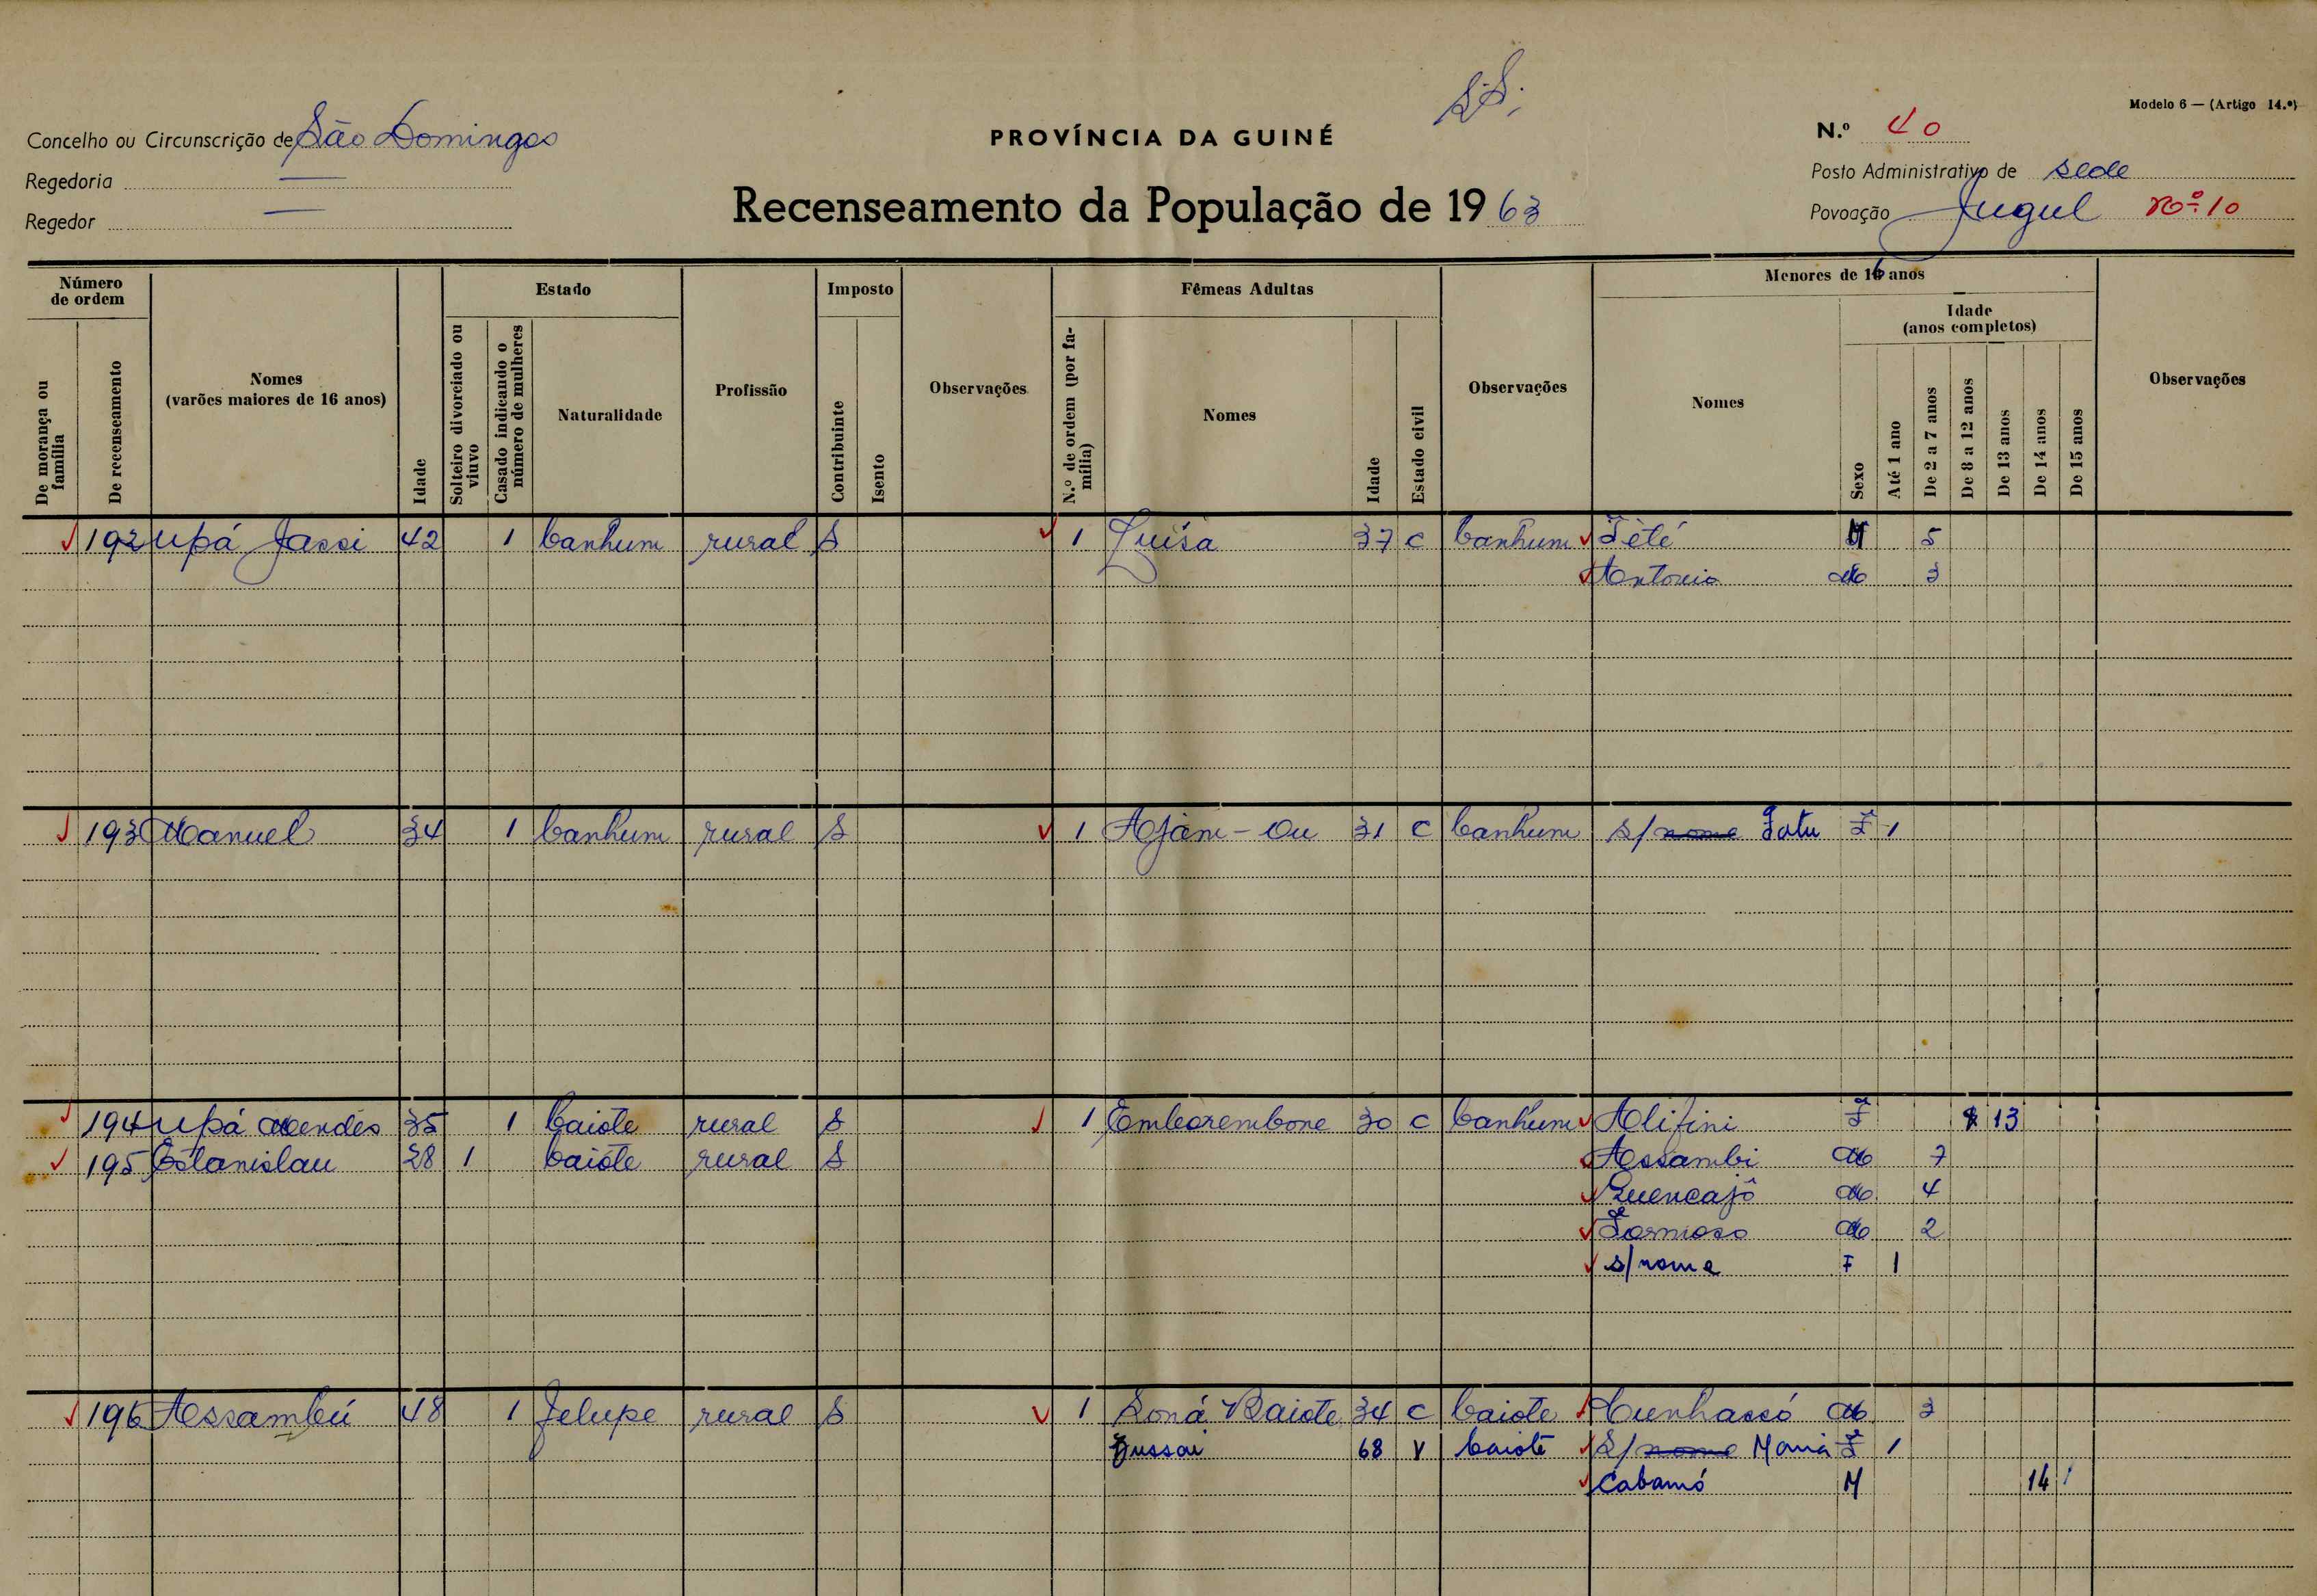 S.S.
Modelo 6 — (Artigo 14.º)
Concelho ou Circunscrição de São Domingos
PROVÍNCIA DA GUINÉ
N.º 40
Regedoria —
Posto Administrativo de Sede
Regedor —
Recenseamento da População de 1963
Povoação Jugul nº 10
Número de ordem
De morança ou família
De recenseamento
Nomes (varões maiores de 16 anos)
Idade
Estado
Solteiro divorciado ou viuvo
Casado indicando o número de mulheres
Naturalidade
Profissão
Imposto
Contribuinte
Isento
Observações
Fêmeas Adultas
N.º de ordem (por família)
Nomes
Idade
Estado civil
Observações
Menores de 16 anos
Nomes
Sexo
Idade (anos completos)
Até 1 ano
De 2 a 7 anos
De 8 a 12 anos
De 13 anos
De 14 anos
De 15 anos
Observações
192 Upá Jassi 42 1 banhum rural S 1 Luisa 37 C banhum Tété M 5
Antonio M 3
193 Manuel 34 1 banhum rural S 1 Ajam-Ou 31 C banhum S/ nome Fatu F 1
194 Upá Mendes 35 1 baiote rural S 1 Emborembone 30 C banhum Alifini F 8 13
195 Estanislau 28 1 baiote rural S Assambi M 7
Quencajô M 4
Formoso M 2
s/nome F 1
196 Assambú 48 1 felupe rural S 1 Soná Baiote 34 C baiote Cunhassó M 3
Jussai 68 V baiote S/ nome Maria F 1
Cabamó M 14